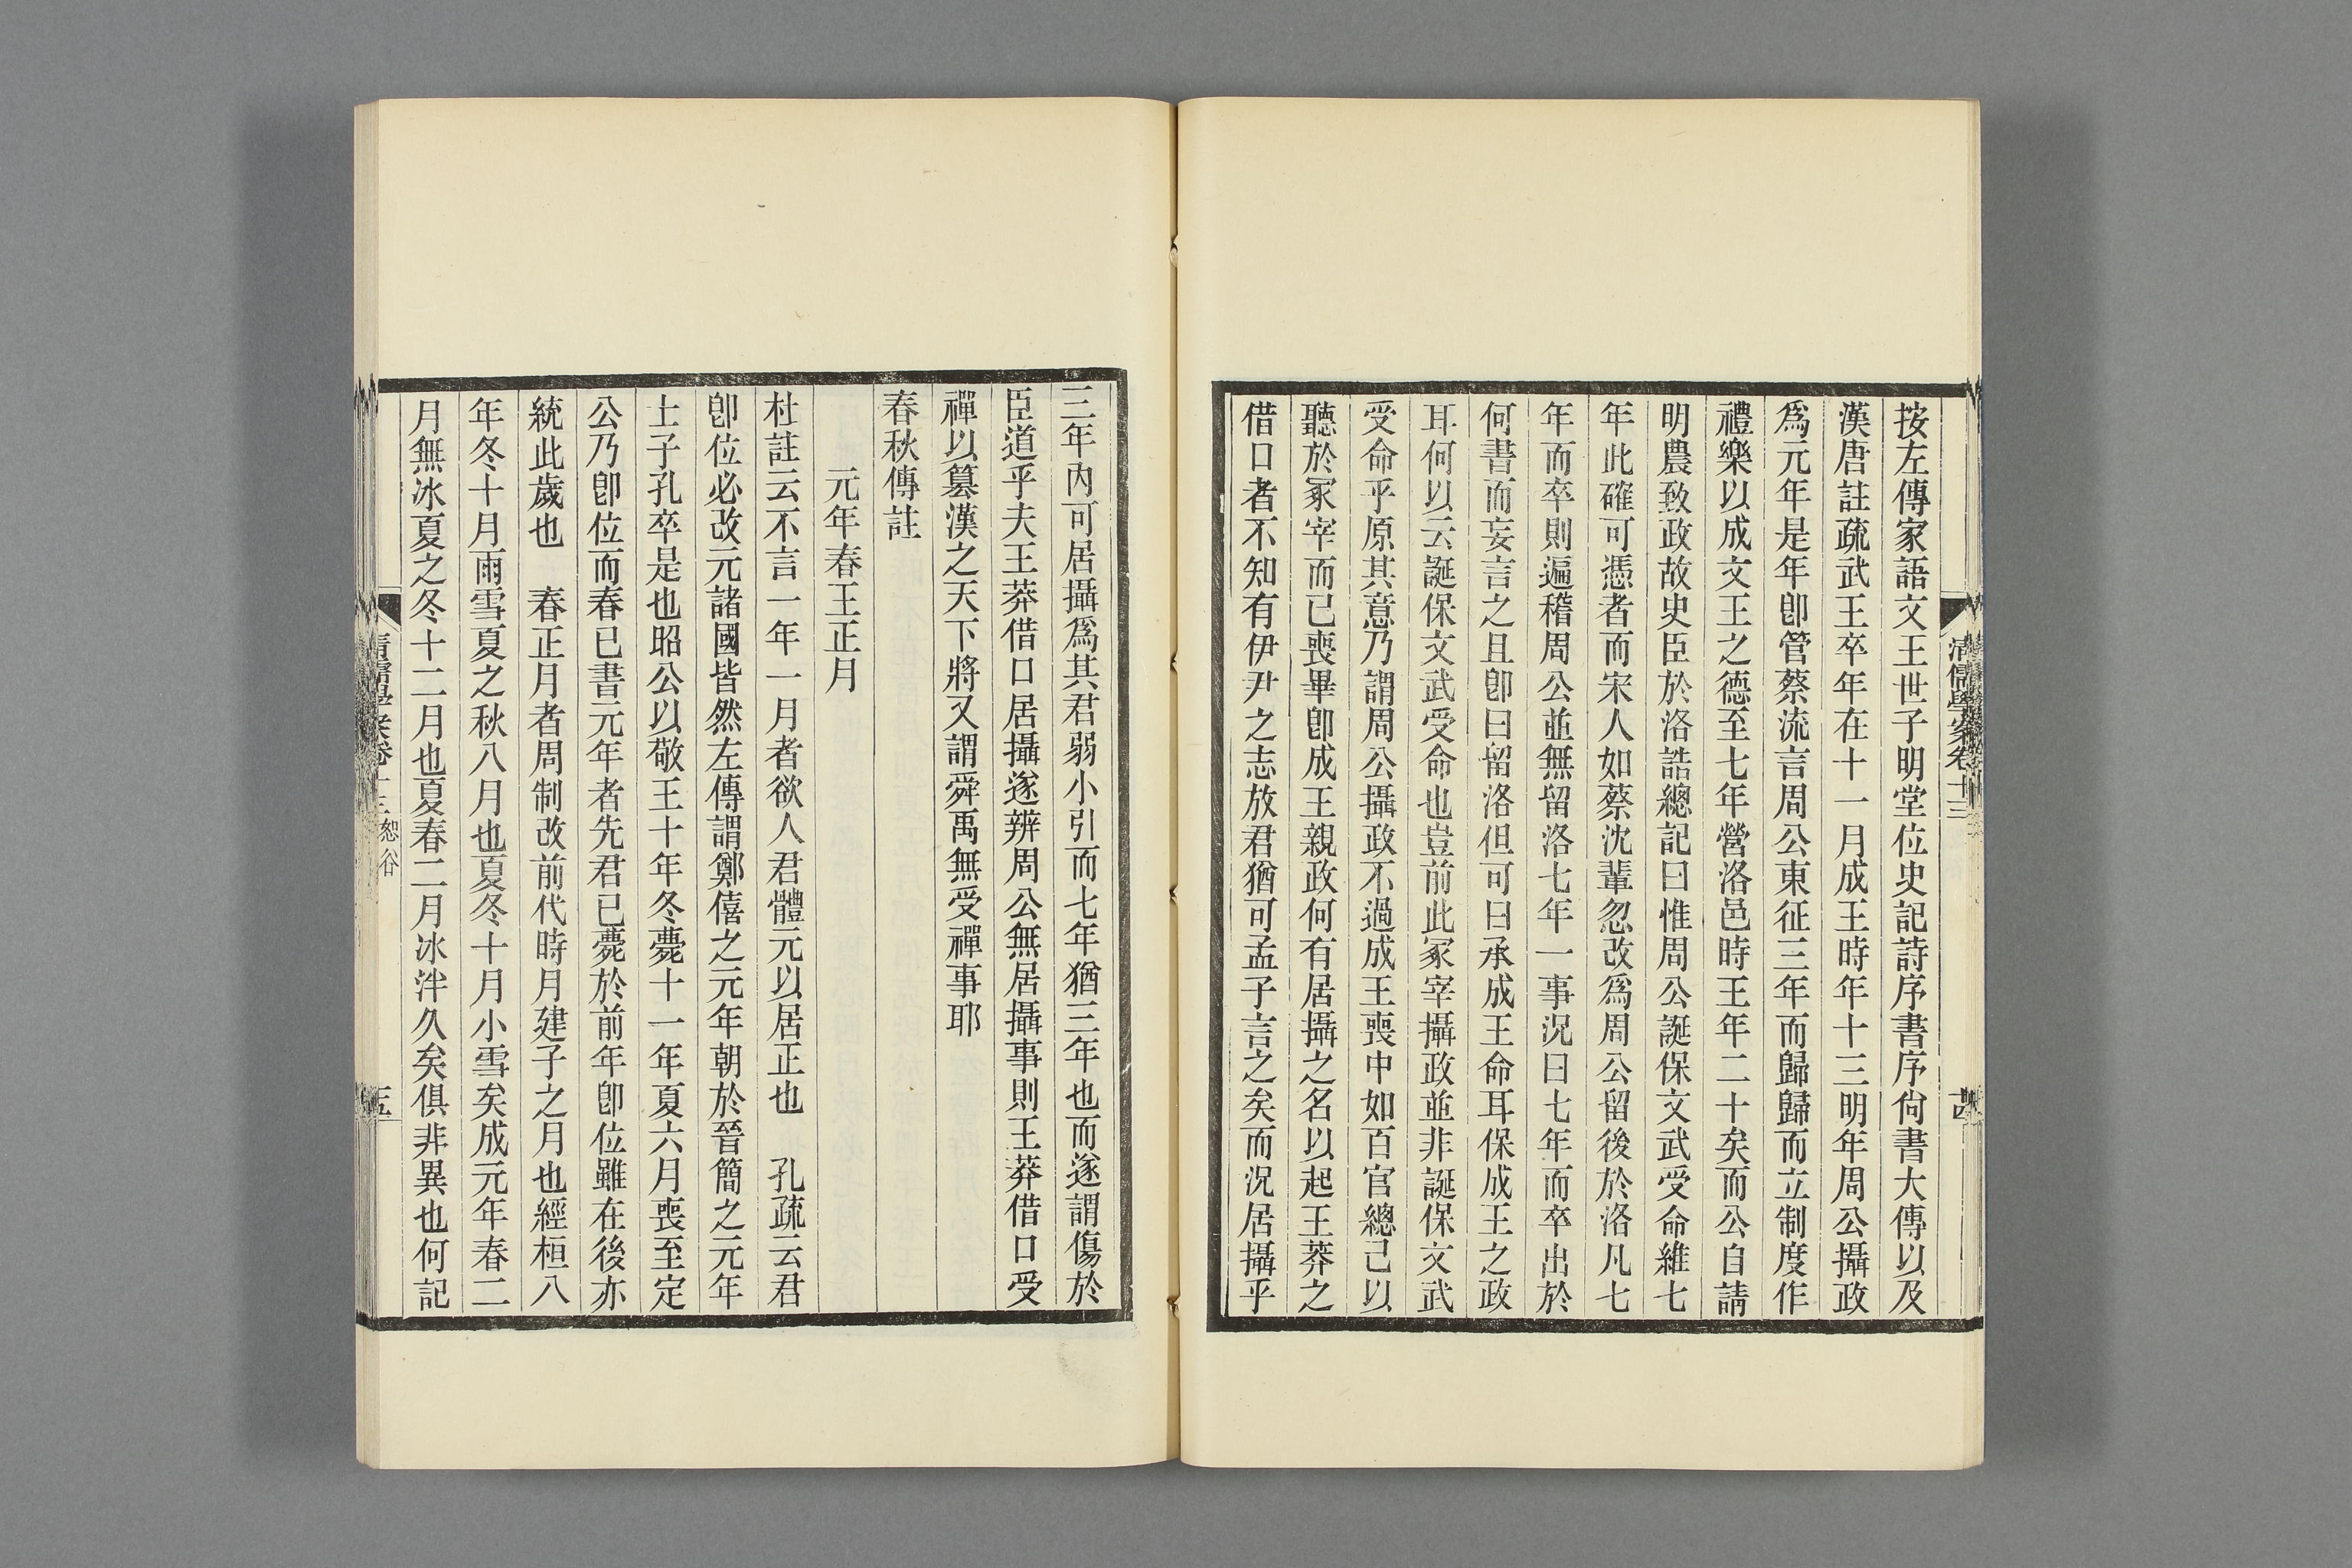 清儒學案卷十三
十四
按左傳家語文王世子明堂位史記詩序書序尙書大傳以及
漢唐註疏武王卒年在十一月成王時年十三明年周公攝政
爲元年是年卽管蔡流言周公東征三年而歸歸而立制度作
禮樂以成文王之德至七年營洛邑時王年二十矣而公自請
明農致政故史臣於洛誥總記曰惟周公誕保文武受命維七
年此確可憑者而宋人如蔡沈輩忽改爲周公留後於洛凡七
年而卒則遍稽周公並無留洛七年一事況曰七年而卒出於
何書而妄言之且卽曰留洛但可曰承成王命耳保成王之政
耳何以云誕保文武受命也豈前此冢宰攝政並非誕保文武
受命乎原其意乃謂周公攝政不過成王喪中如百官總己以
聽於冢宰而已喪畢卽成王親政何有居攝之名以起王莽之
借口者不知有伊尹之志放君猶可孟子言之矣而況居攝乎
三年內可居攝爲其君弱小引而七年猶三年也而遂謂傷於
臣道乎夫王莽借口居攝遂辨周公無居攝事則王莽借口受
禪以簒漢之天下將又謂舜禹無受禪事耶
春秋傳註
元年春王正月
杜註云不言一年一月者欲人君體元以居正也 孔疏云君
卽位必改元諸國皆然左傳謂鄭僖之元年朝於晉簡之元年
士子孔卒是也昭公以敬王十年冬薨十一年夏六月喪至定
公乃卽位而春已書元年者先君已薨於前年卽位雖在後亦
統此歲也 春正月者周制改前代時月建子之月也經桓八
年冬十月雨雪夏之秋八月也夏冬十月小雪矣成元年春二
月無冰夏之冬十二月也夏春二月冰泮久矣俱非異也何記
清儒學案卷十三 恕谷